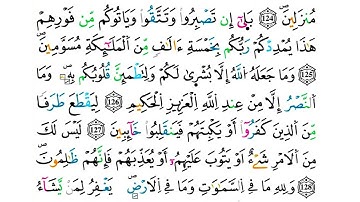 مُنزَلِينَ ۝١٢٤ بَلَىٰٓ إِن تَصْبِرُوا۟ وَتَتَّقُوا۟ وَيَأْتُوكُم مِّن فَوْرِهِمْ
هَٰذَا يُمْدِدْكُمْ رَبُّكُم بِخَمْسَةِ ءَالَٰفٍ مِّنَ ٱلْمَلَٰٓئِكَةِ مُسَوَّمِينَ
۝١٢٥ وَمَا جَعَلَهُ ٱللَّهُ إِلَّا بُشْرَىٰ لَكُمْ وَلِتَطْمَئِنَّ قُلُوبُكُم بِهِۦ وَمَا
ٱلنَّصْرُ إِلَّا مِنْ عِندِ ٱللَّهِ ٱلْعَزِيزِ ٱلْحَكِيمِ ۝١٢٦ لِيَقْطَعَ طَرَفًا
مِّنَ ٱلَّذِينَ كَفَرُوٓا۟ أَوْ يَكْبِتَهُمْ فَيَنقَلِبُوا۟ خَآئِبِينَ ۝١٢٧ لَيْسَ لَكَ
مِنَ ٱلْأَمْرِ شَىْءٌ أَوْ يَتُوبَ عَلَيْهِمُۥٓ أَوْ يُعَذِّبَهُمْ فَإِنَّهُمْ ظَٰلِمُونَ
۝١٢٨ وَلِلَّهِ مَا فِى ٱلسَّمَٰوَٰتِ وَمَا فِى ٱلْأَرْضِ يَغْفِرُ لِمَن يَشَآءُ